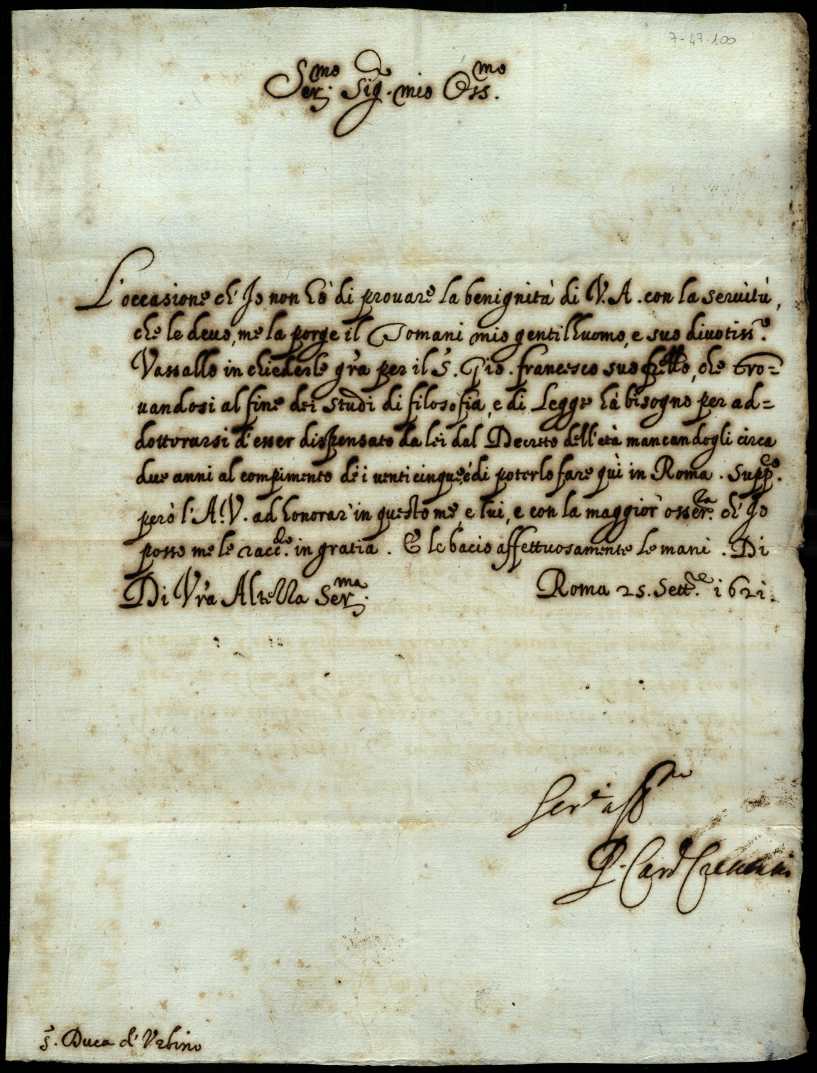 7-47-100
Ser.mo Sig.r mio Oss.mo
L'occasione ch'Io non hò di provare la benignità di V.A. con la servitù,
che le devo, me la porge il Tomani mio gentilhuomo, e suo divotiss.o
Vassallo in chiederle gra per il S. Gio. francesco suo frello, che tro=
vandosi al fine dei Studi di filosofia, e di Legge hà bisogno per ad=
dottorarsi d'esser dispensato da lei dal Decreto dell'età mancandogli circa
due anni al compimento de i venticinque, ò di poterlo fare quì in Roma. Supp.co
però l'A.V. ad honorar in questo me, e lui, e con la maggior osser.za ch'Io
posso me le racc.do in gratia. E le bacio affettuosamente le mani. Di
Di Vra Altezza Ser.ma Roma 25. Sett.e 1621.
Ser.e aff.mo
P. Card. Crescentio
S. Duca d'Urbino